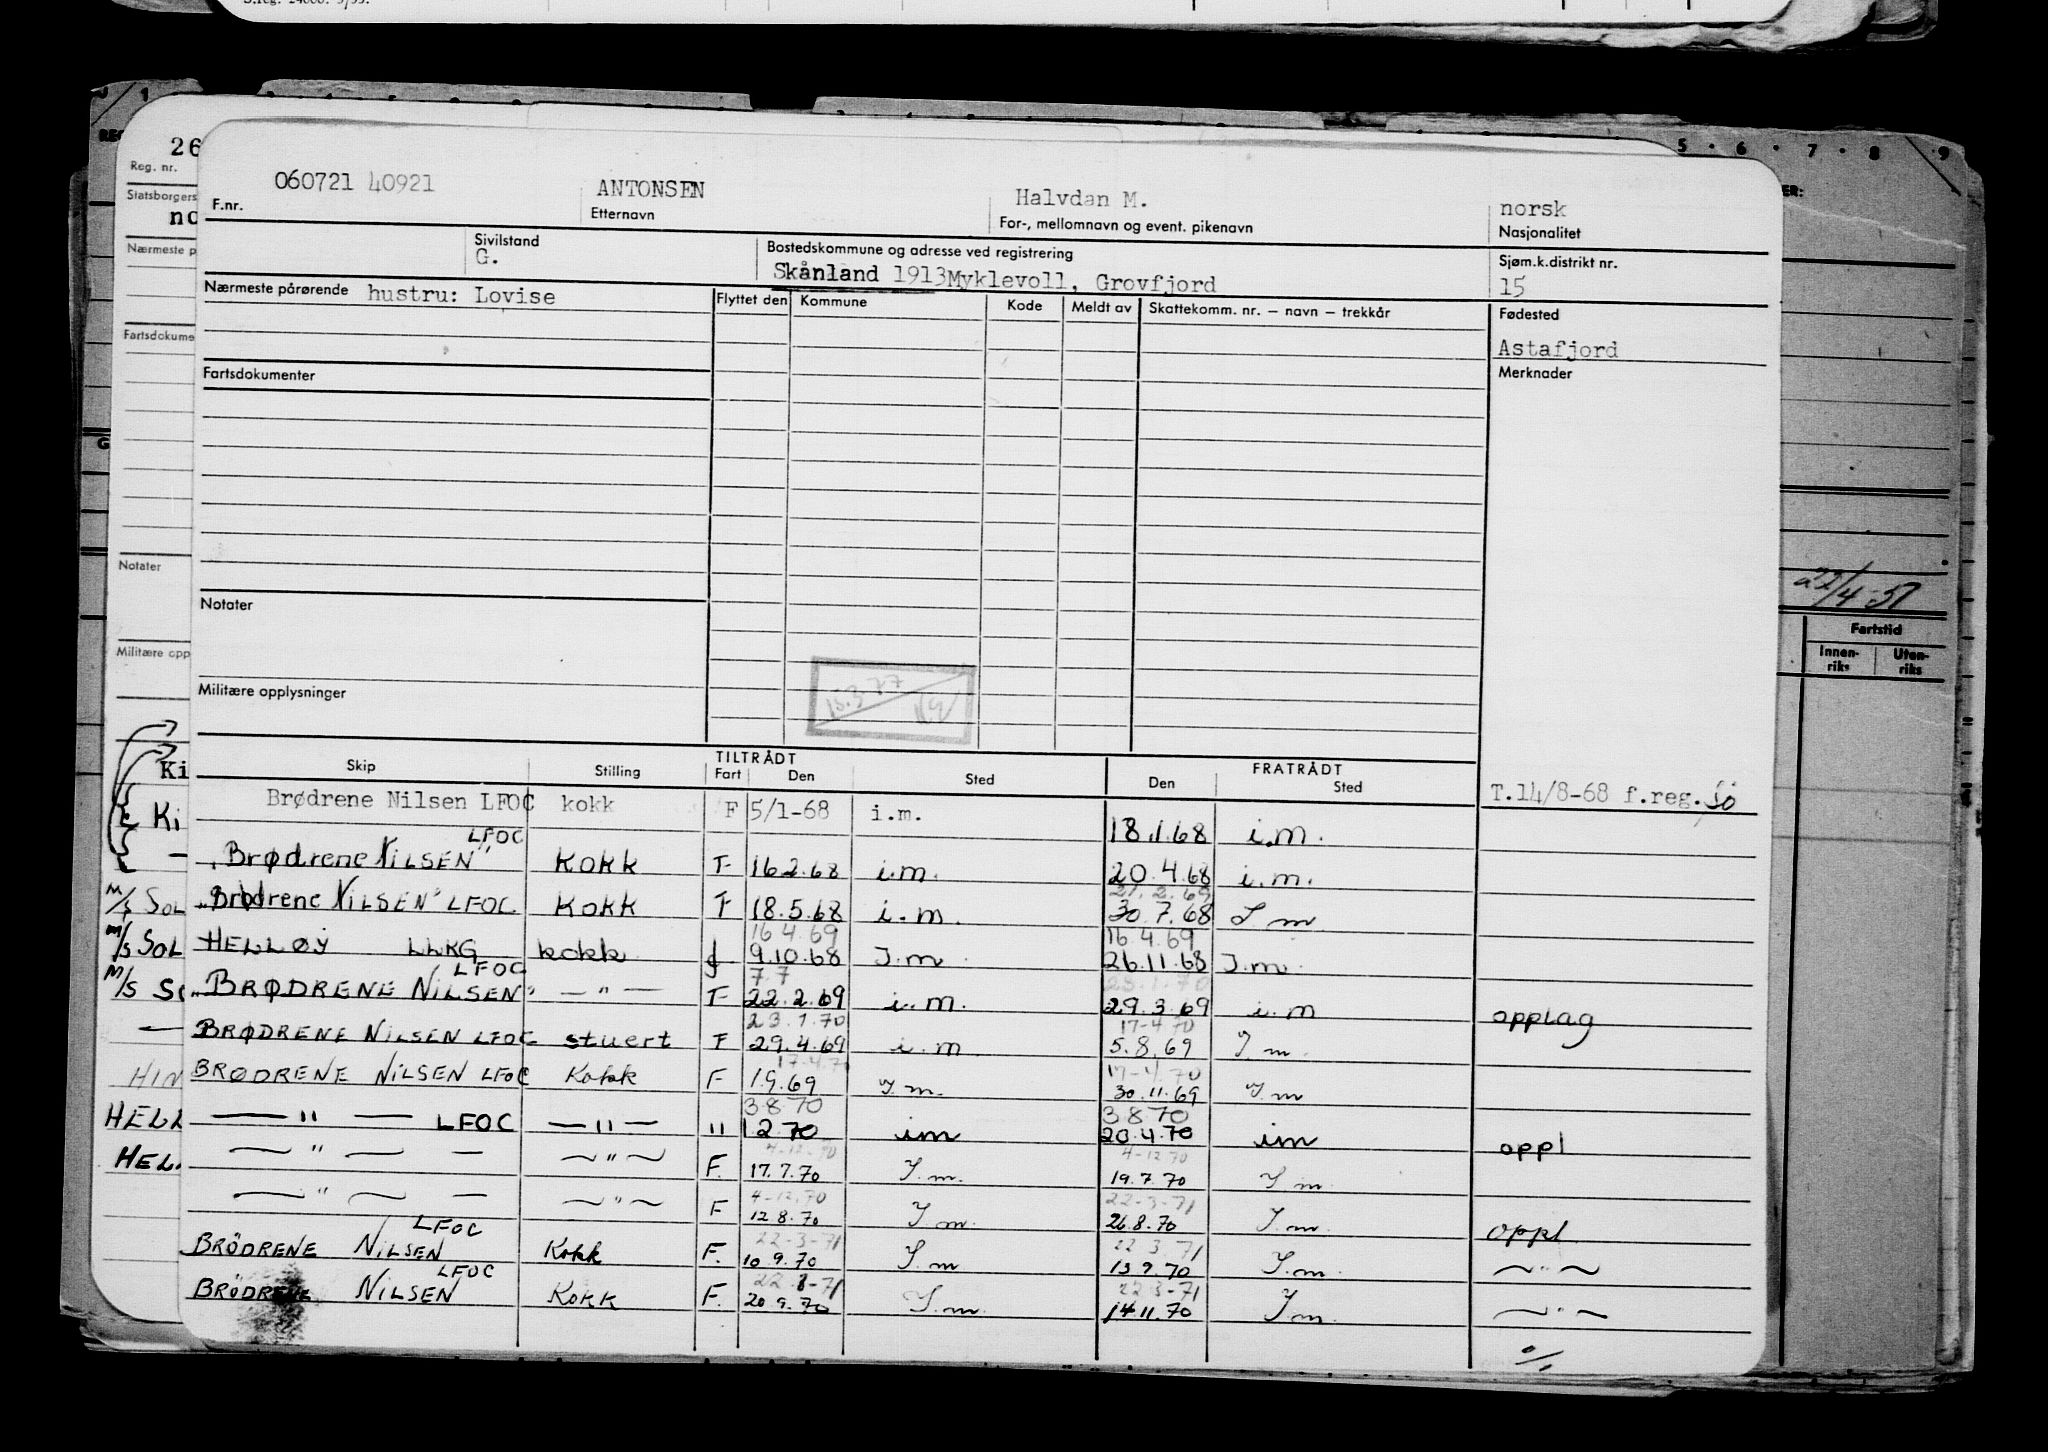 S.reg. 24000. 3/55.
REG
26
Reg. nr.
Statsborgers
no
Nærmeste p
Fartsdokume
Notater
Militære opp
Ki
Ki
M/S SOL
M/S SOL
M/S SO
HIN
HELL
HEL
060721 40921 ANTONSEN Halvdan M. norsk
F.nr. Etternavn For-, mellomnavn og event. pikenavn Nasjonalitet
Sivilstand Bostedskommune og adresse ved registrering Sjøm.k.distrikt nr.
G. Skånland 1913 Myklevoll, Grovfjord 15
Nærmeste pårørende hustru: Lovise Flyttet den Kommune Kode Meldt av Skattekomm. nr. — navn — trekkår Fødested
Astafjord
Fartsdokumenter Merknader
Notater
Militære opplysninger
15.3 77
22/4-51
Fartstid
Innen-riks Uten-riks
TILTRÅDT FRATRÅDT
Skip Stilling Fart Den Sted Den Sted
Brødrene Nilsen LFOC kokk F 5/1-68 i.m. 18.1.68 i.m. T.14/8-68 f.reg.
"Brødrene NILSEN" LFOC KOKK F 16.2.68 i.m. 20.4.68 i.m.
21.2.69
"Brødrene NILSEN" LFOC KOKK F 18.5.68 i.m. 30.7.68 I m
16 4.69 16.4.69
HELLØY LLKG kokk f 9.10.68 I.m. 26.11.68 I.m.
7.7 23.1.70
"BRØDRENE NILSEN" LFOC — " — F 22.2.69 i.m. 29.3.69 i.m opplag
23.1.70 17-4.70
BRØDRENE NILSEN LFOC stuert F 29.4.69 i.m. 5.8.69 I.m.
17.4.70 17-4/70
BRØDRENE NILSEN LFOC Kokk F 1.9.69 I.m. 30.11.69 I.m
3870 3870
— " — LFOC — " — " 1 2.70 im 20.4.70 im oppl
4-12.70 4-12 70
— " — — — " — F. 17.7.70 I.m. 19.7.70 I m.
4-12.70 22-3-71
— " — — — " — F 12 8.70 I.m. 26.8.70 I.m. oppl.
22-3-71 22 3.71
BRÖDRENE NILSEN LFOC Kokk F. 10 9.70 I.m 13 9.70 I.m. — " —
22.3-71 22 3-71
BRÖDRENE NILSEN LFOC KOKK F. 20 9.70 I.m. 14.11.70 I.m. — " —